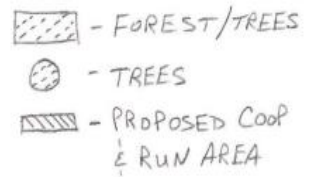 - FOREST/TREES
- TREES
- PROPOSED COOP
& RUN AREA